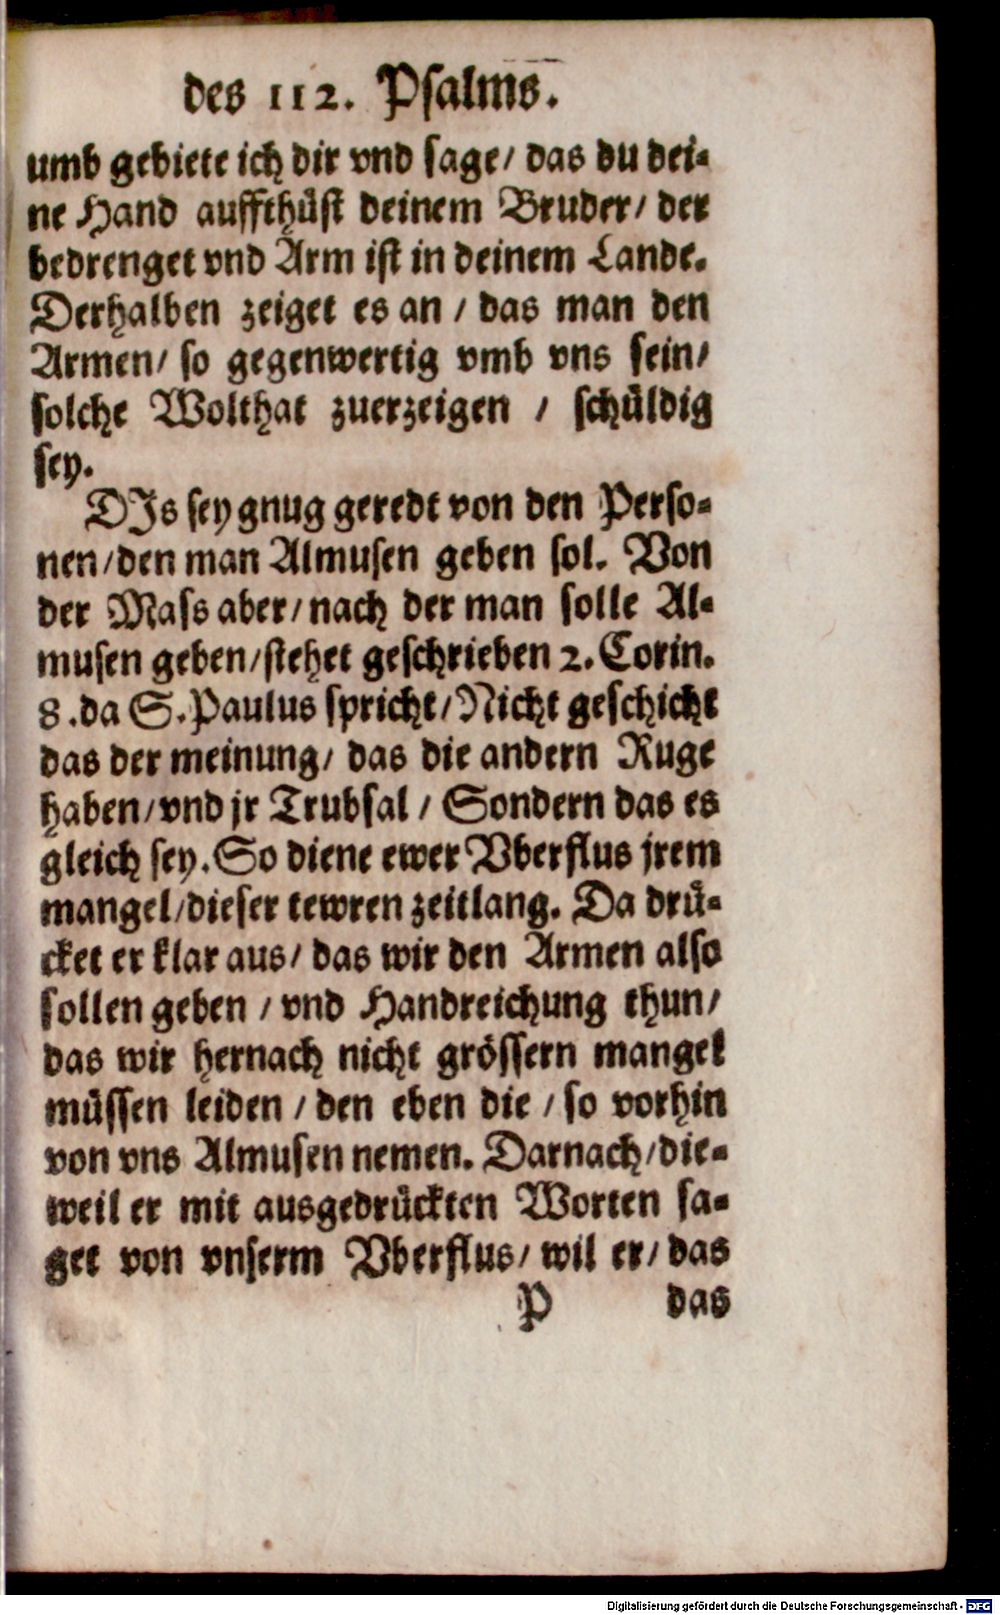 des 112. Psalms.
umb gebiete ich dir vnd sage/ das du dei-
ne Hand auffthüst deinem Bruder/ der
bedrenget vnd Arm ist in deinem Lande.
Derhalben zeiget es an / das man den
Armen/ so gegenwertig vmb vns sein/
solche Wolthat zuerzeigen / schüldig
sey.
DJs sey gnug geredt von den Perso-
nen/den man Almusen geben sol. Von
der Mass aber/nach der man solle Al-
musen geben/stehet geschrieben 2. Corin.
8 .da S. Paulus spricht/Nicht geschicht
das der meinung/ das die andern Ruge
haben/vnd jr Trubsal / Sondern das es
gleich sey. So diene ewer Vberflus jrem
mangel/dieser tewren zeitlang. Da drü-
cket er klar aus/ das wir den Armen also
sollen geben / vnd Handreichung thun/
das wir hernach nicht grössern mangel
müssen leiden / den eben die / so vorhin
von vns Almusen nemen. Darnach/die-
weil er mit ausgedrückten Worten sa-
get von vnserm Vberflus/ wil er/ das
P das
Digitalisierung gefördert durch die Deutsche Forschungsgemeinschaft - DFG